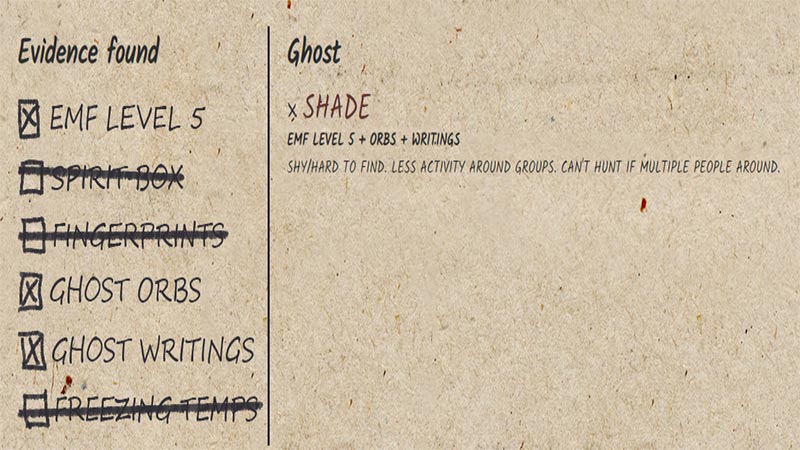 Evidence found
EMF LEVEL 5
SPIRIT BOX
FINGERPRINTS
GHOST ORBS
GHOST WRITINGS
FREEZING TEMPS
Ghost
x SHADE
EMF LEVEL 5 + ORBS + WRITINGS
SHY/HARD TO FIND. LESS ACTIVITY AROUND GROUPS. CAN'T HUNT IF MULTIPLE PEOPLE AROUND.